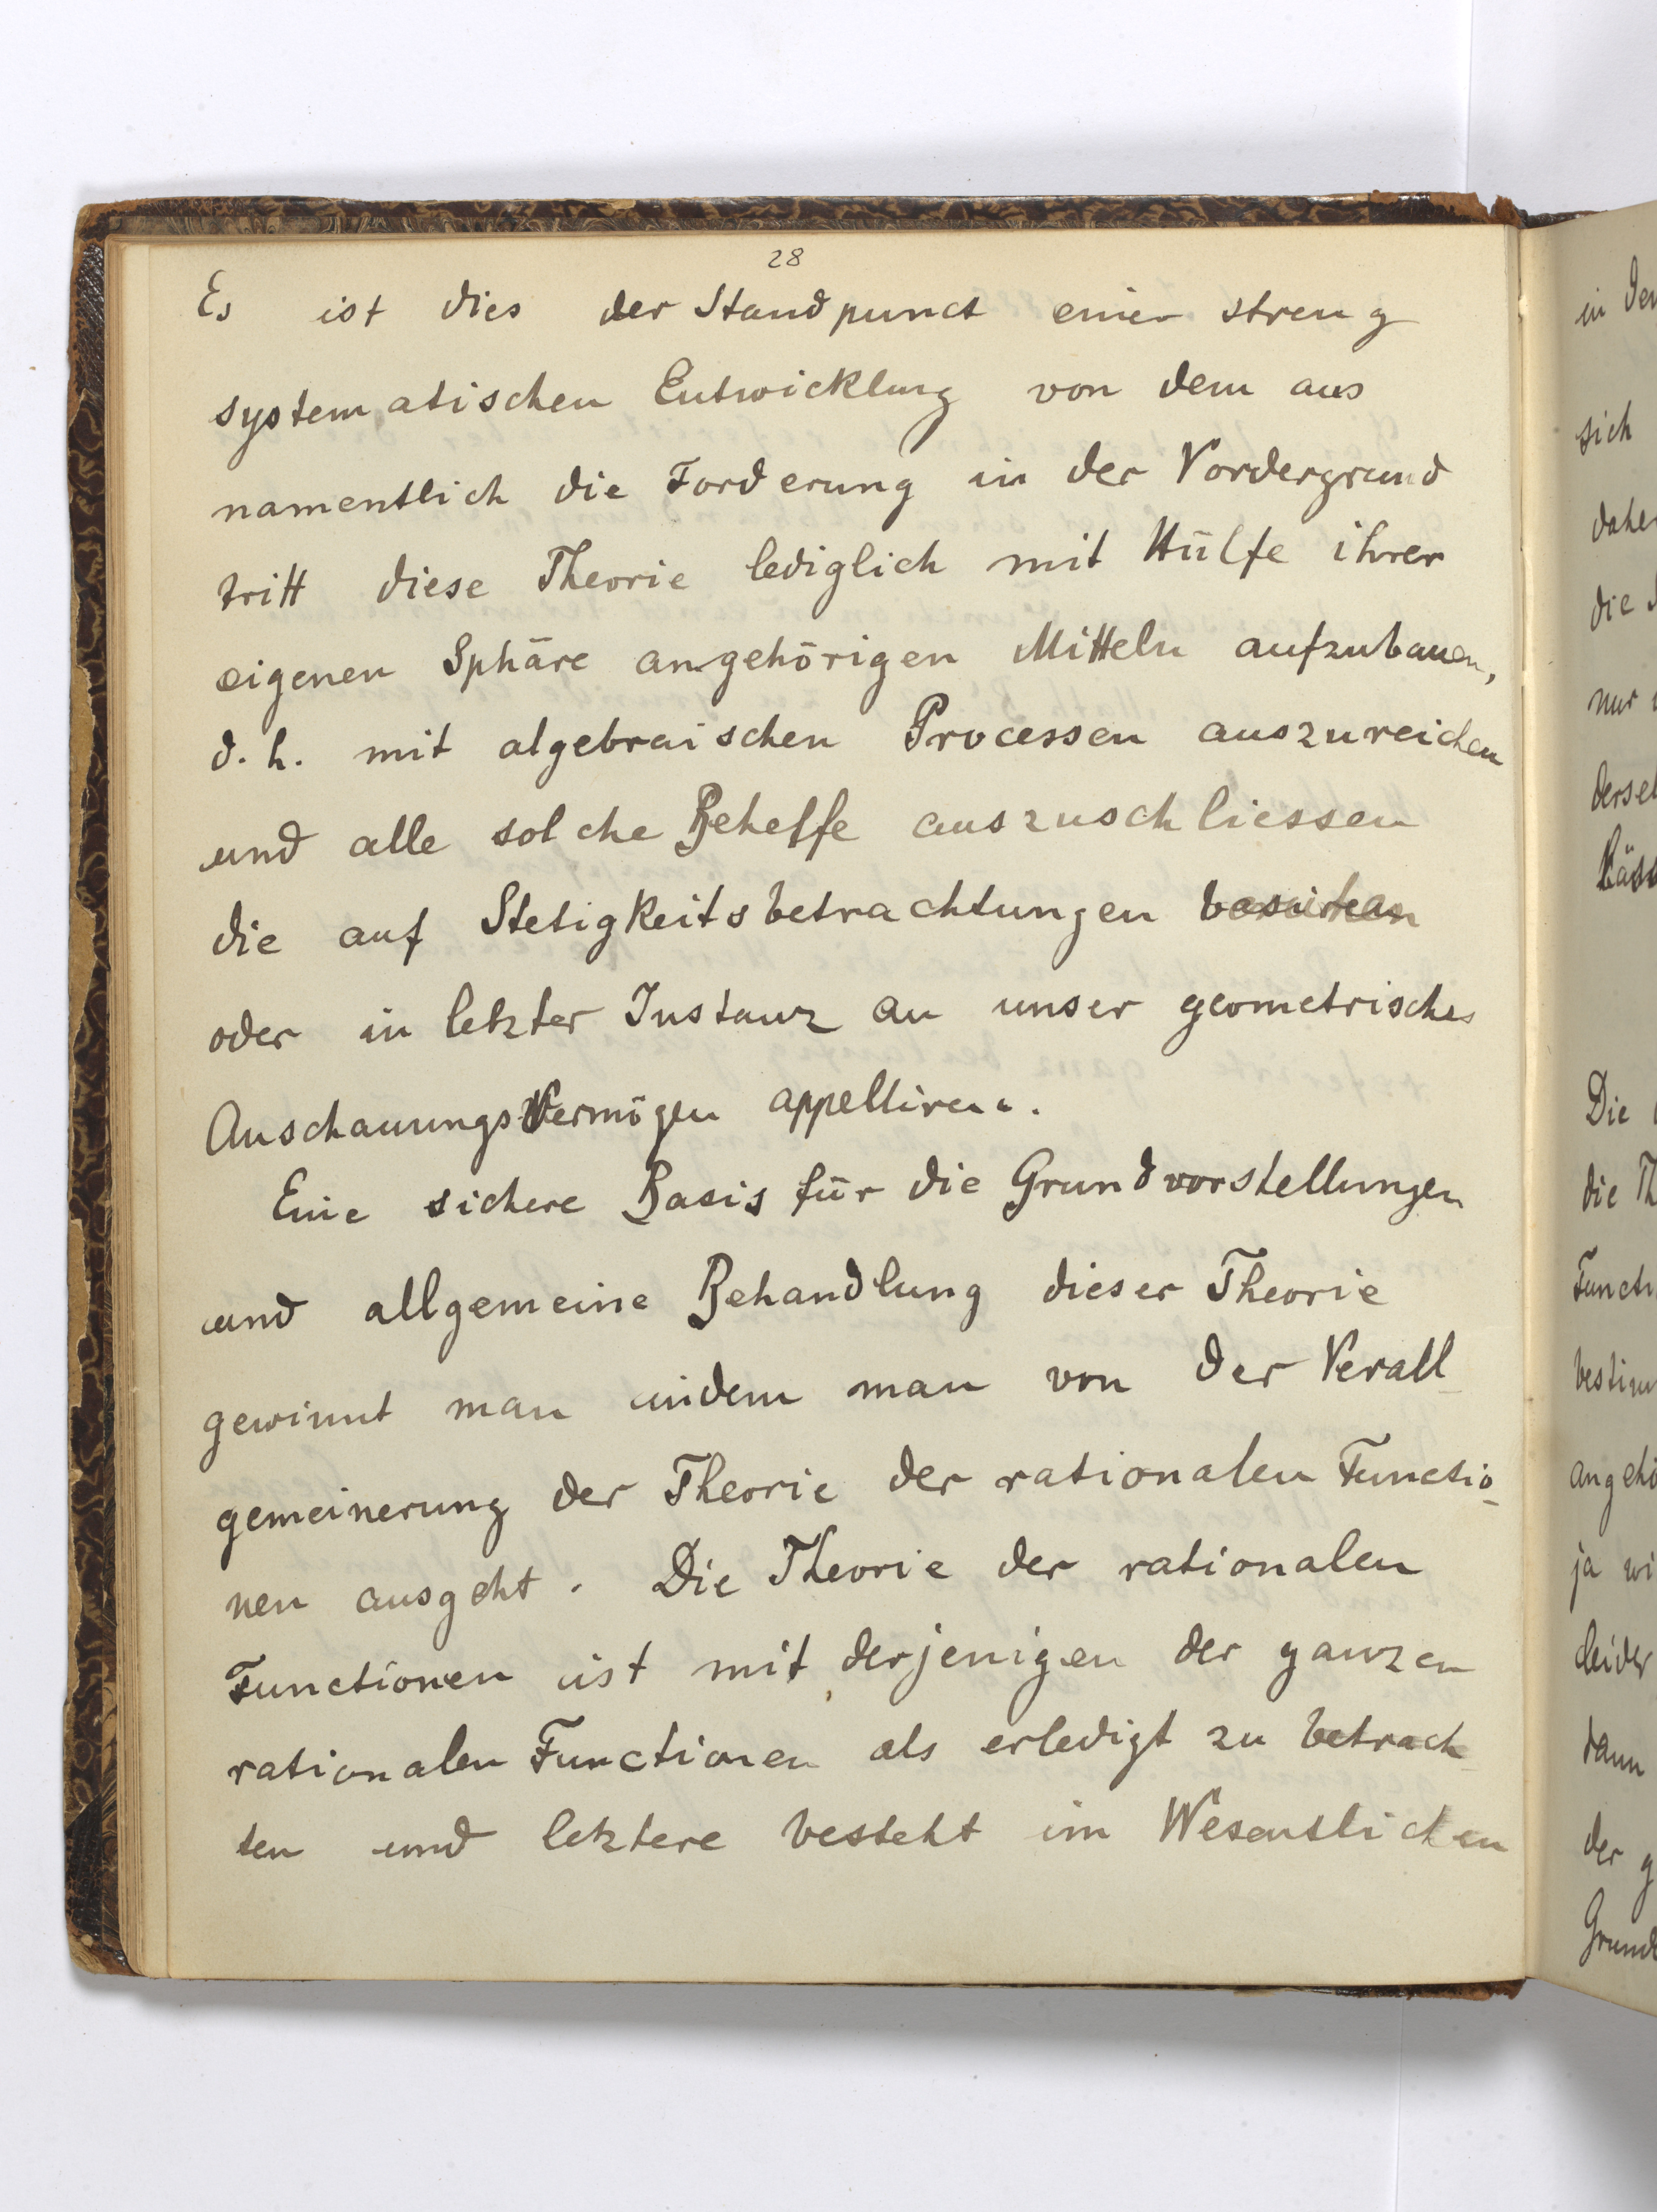 28
Es ist dies der Standpunct einer streng
systematischen Entwicklung von dem aus
namentlich die Forderung in der Vordergrund
tritt diese Theorie lediglich mit Hülfe ihrer
eigenen Sphäre angehörigen Mitteln aufzubauen,
d. h. mit algebraischen Processen auszureichen
und alle solche Behelfe auszuschliessen
die auf Stetigkeitsbetrachtungen
oder in letzter Instanz an unser geometrisches
AnschauungsVermögen appelliren.
Eine sichere Basis für die Grundvorstellungen
und allgemeine Behandlung dieser Theorie
gewinnt man indem man von der Verall-
gemeinerung der Theorie der rationalen Functio-
nen ausgeht. Die Theorie der rationalen
Functionen ist mit derjenigen der ganzen
rationalen Functionen als erledigt zu betrach-
ten und letztere besteht im Wesentlichen
in
sich
die
nur
Die
die Th
ja wi
dann
der g